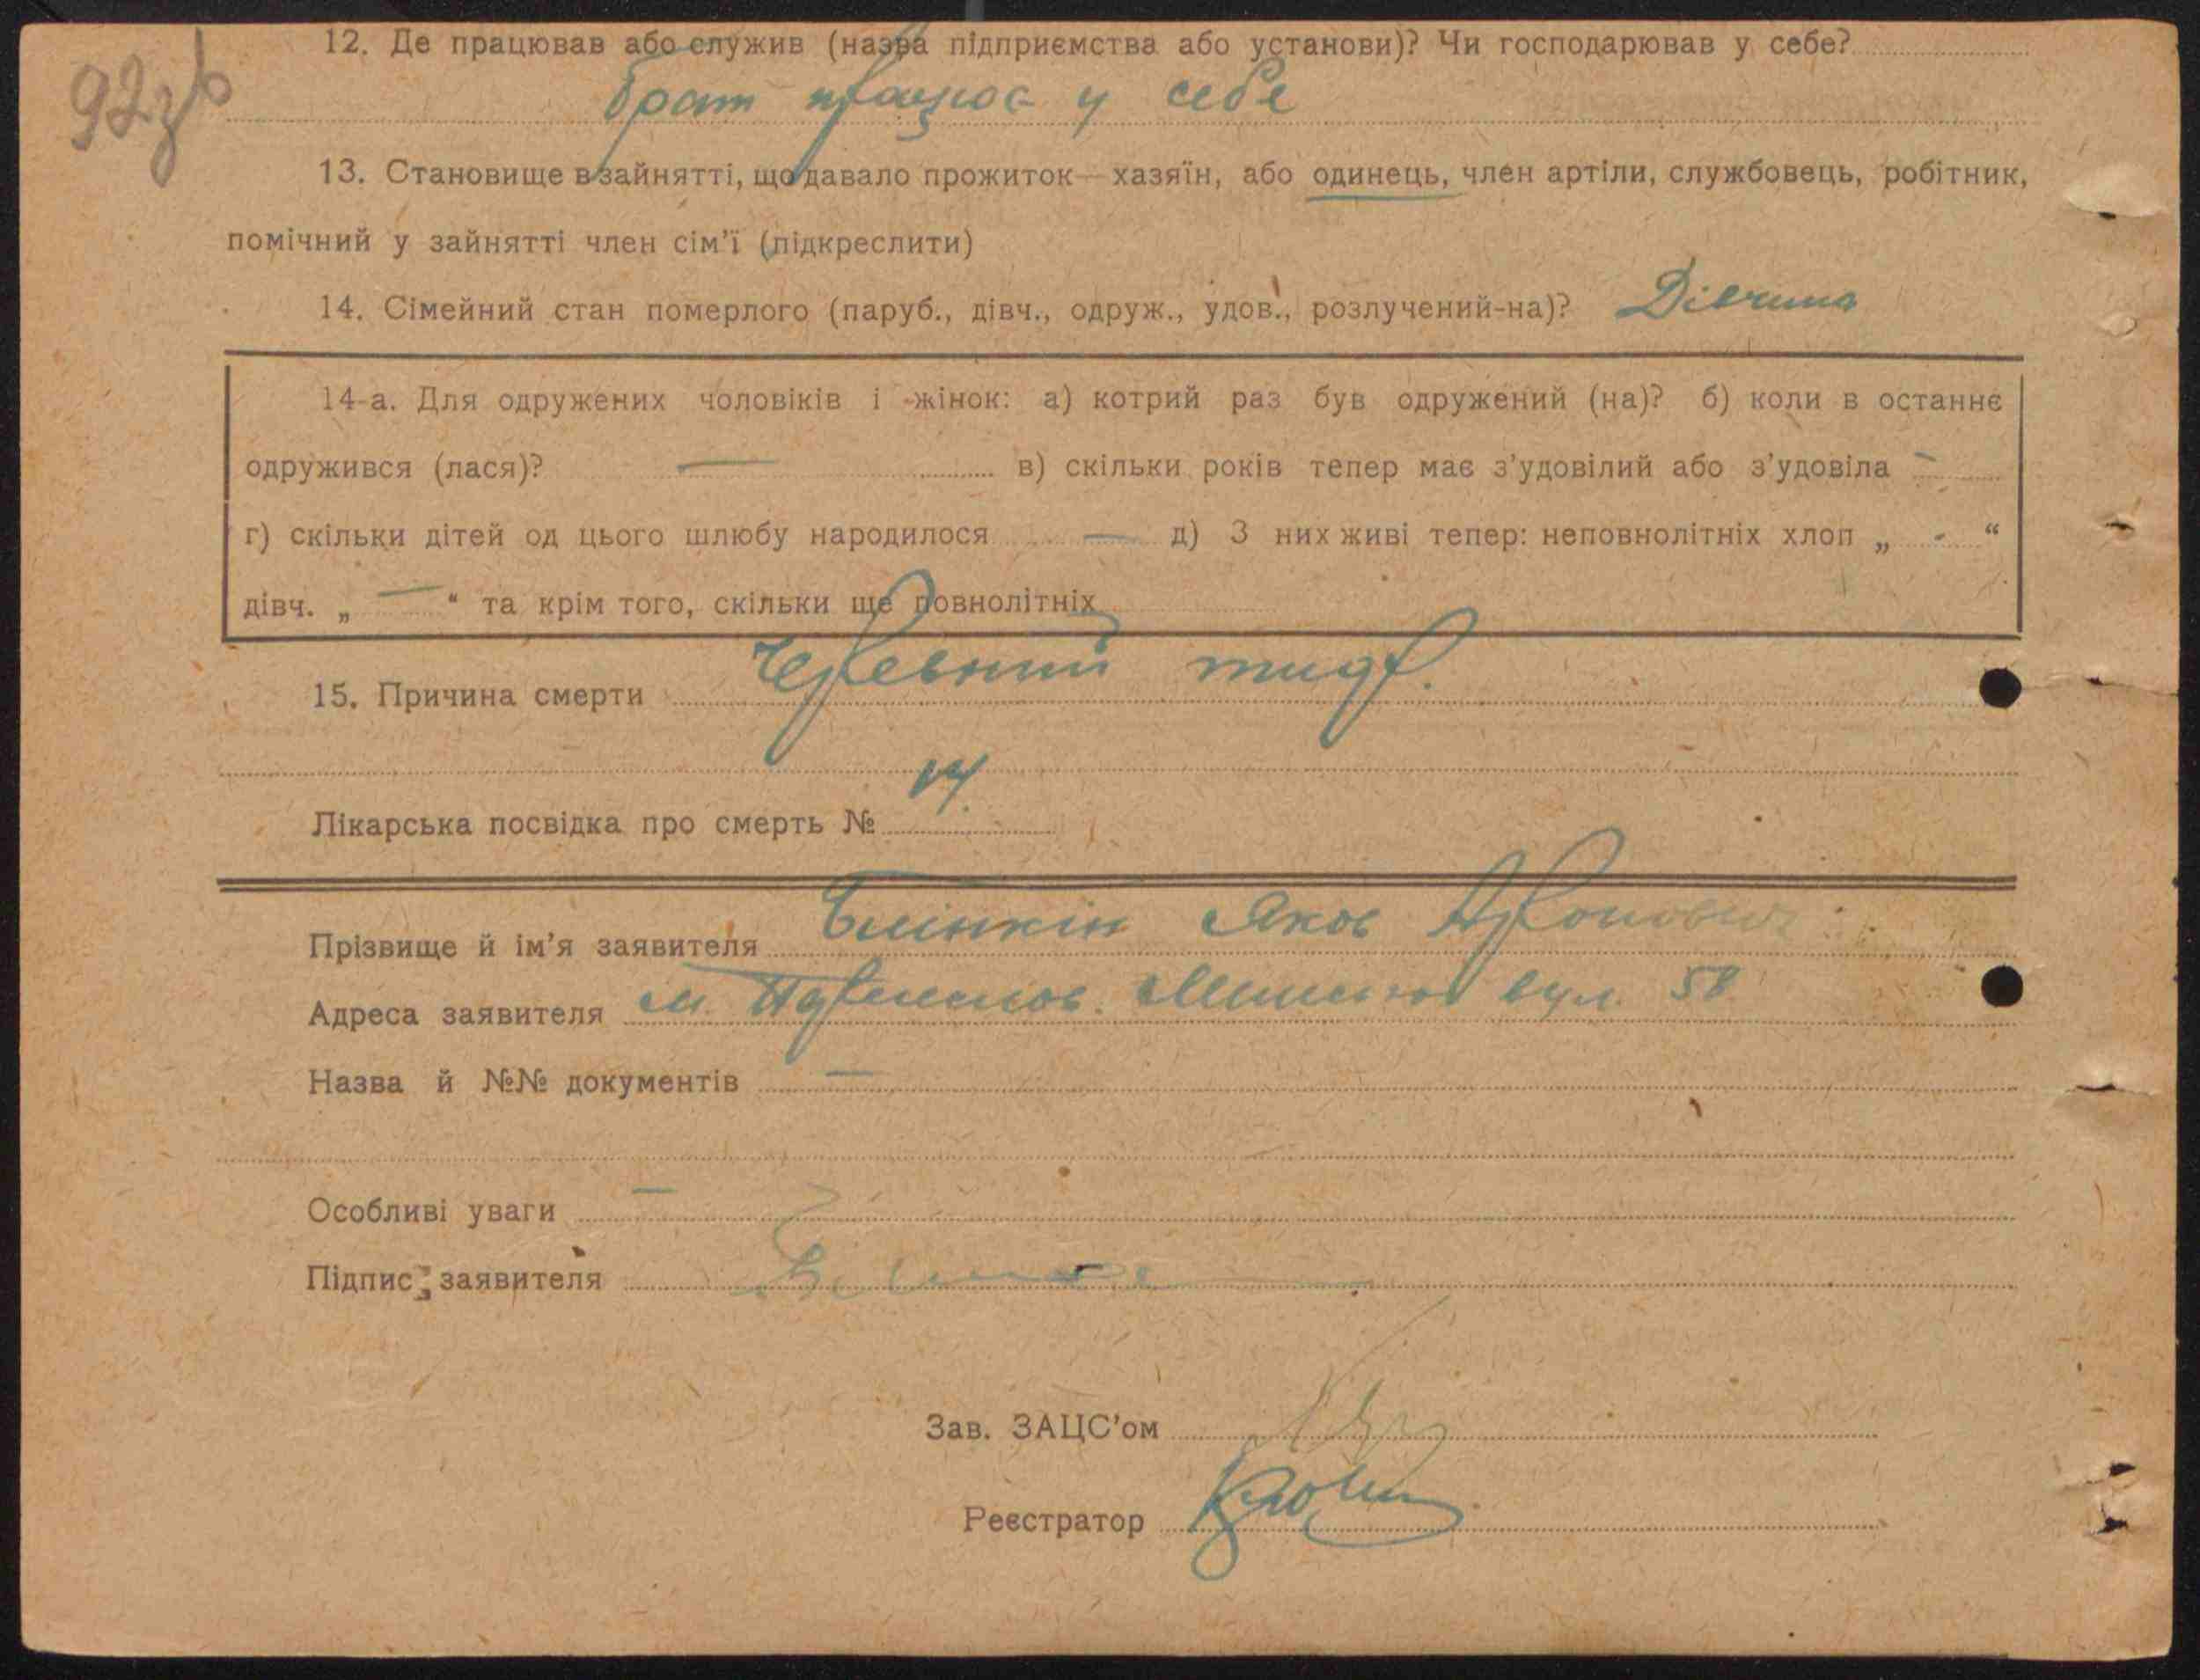 92зв
12. Де працював або служив (назва підприємства або установи)? Чи господарював у себе?
брат працює у себе
13. Становище в зайнятті, що давало прожиток — хазяїн, або одинець, член артіли, службовець, робітник,
помічний у зайнятті член сім'ї (підкреслити)
14. Сімейний стан померлого (паруб., дівч., одруж., удов., розлучений-на)? Дівчина
14-а. Для одружених чоловіків і жінок: а) котрий раз був одружений (на)? б) коли в останнє
одружився (лася)? — в) скільки років тепер має з'удовілий або з'удовіла —
г) скільки дітей од цього шлюбу народилося — д) З них живі тепер: неповнолітніх хлоп „ - “
дівч. „ — “ та крім того, скільки ще повнолітніх
15. Причина смерти Черевний тиф.
Лікарська посвідка про смерть № 14.
Прізвище й ім'я заявителя Блінкін Яков Аронович
Адреса заявителя м. вул. 58
Назва й №№ документів —
Особливі уваги —
Підпис заявителя
Зав. ЗАЦС'ом
Реєстратор